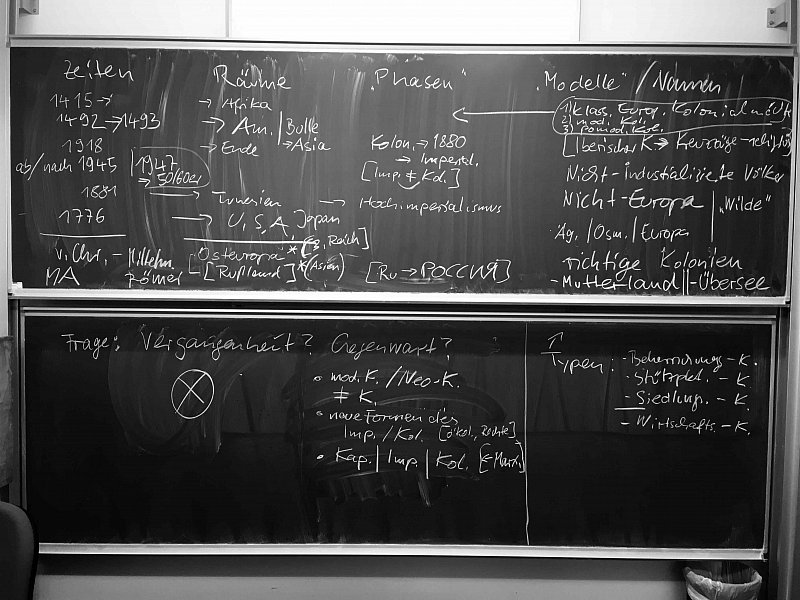 Zeiten
1415 →
1492 → 1493
1918
ab/nach 1945 | 1947
→ 50/60er
1881
1776
v. Chr. – Mittelm.
MA Römer
Räume
→ Afrika
→ Am. | Bulle
→ Ende → Asia
→ Tunesien → Hochimperialismus
→ U.S.A, Japan
Osteuropa * (3. Reich]
– [Rußland] * (Asien)
„Phasen"
Kolon. → 1880
→ Imperial.
[Imp. ≠ Kol.]
[Ru → РОССИЯ]
„Modelle" / Namen
1) klass. Europ. Kolonialmächte
2) mod. Kol.
3) pomod. Kol.
[Iberischer K →
Nicht-Industrialisierte Völker
Nicht-Europa | „Wilde"
Äg. | Osm. | Europa
richtige Kolonien
– Mutterland || – Übersee
Frage: Vergangenheit? Gegenwart?
• mod. K. / Neo-K.
≠ K.
• neue Formen des
Imp. / Kol. [ökol., Rechte]
• Kap. | Imp. | Kol. [← Marx.]
↑
Typen: – Beherrschungs – K.
– Stützpkt. – K.
– Siedlungs. – K.
– Wirtschafts. – K.